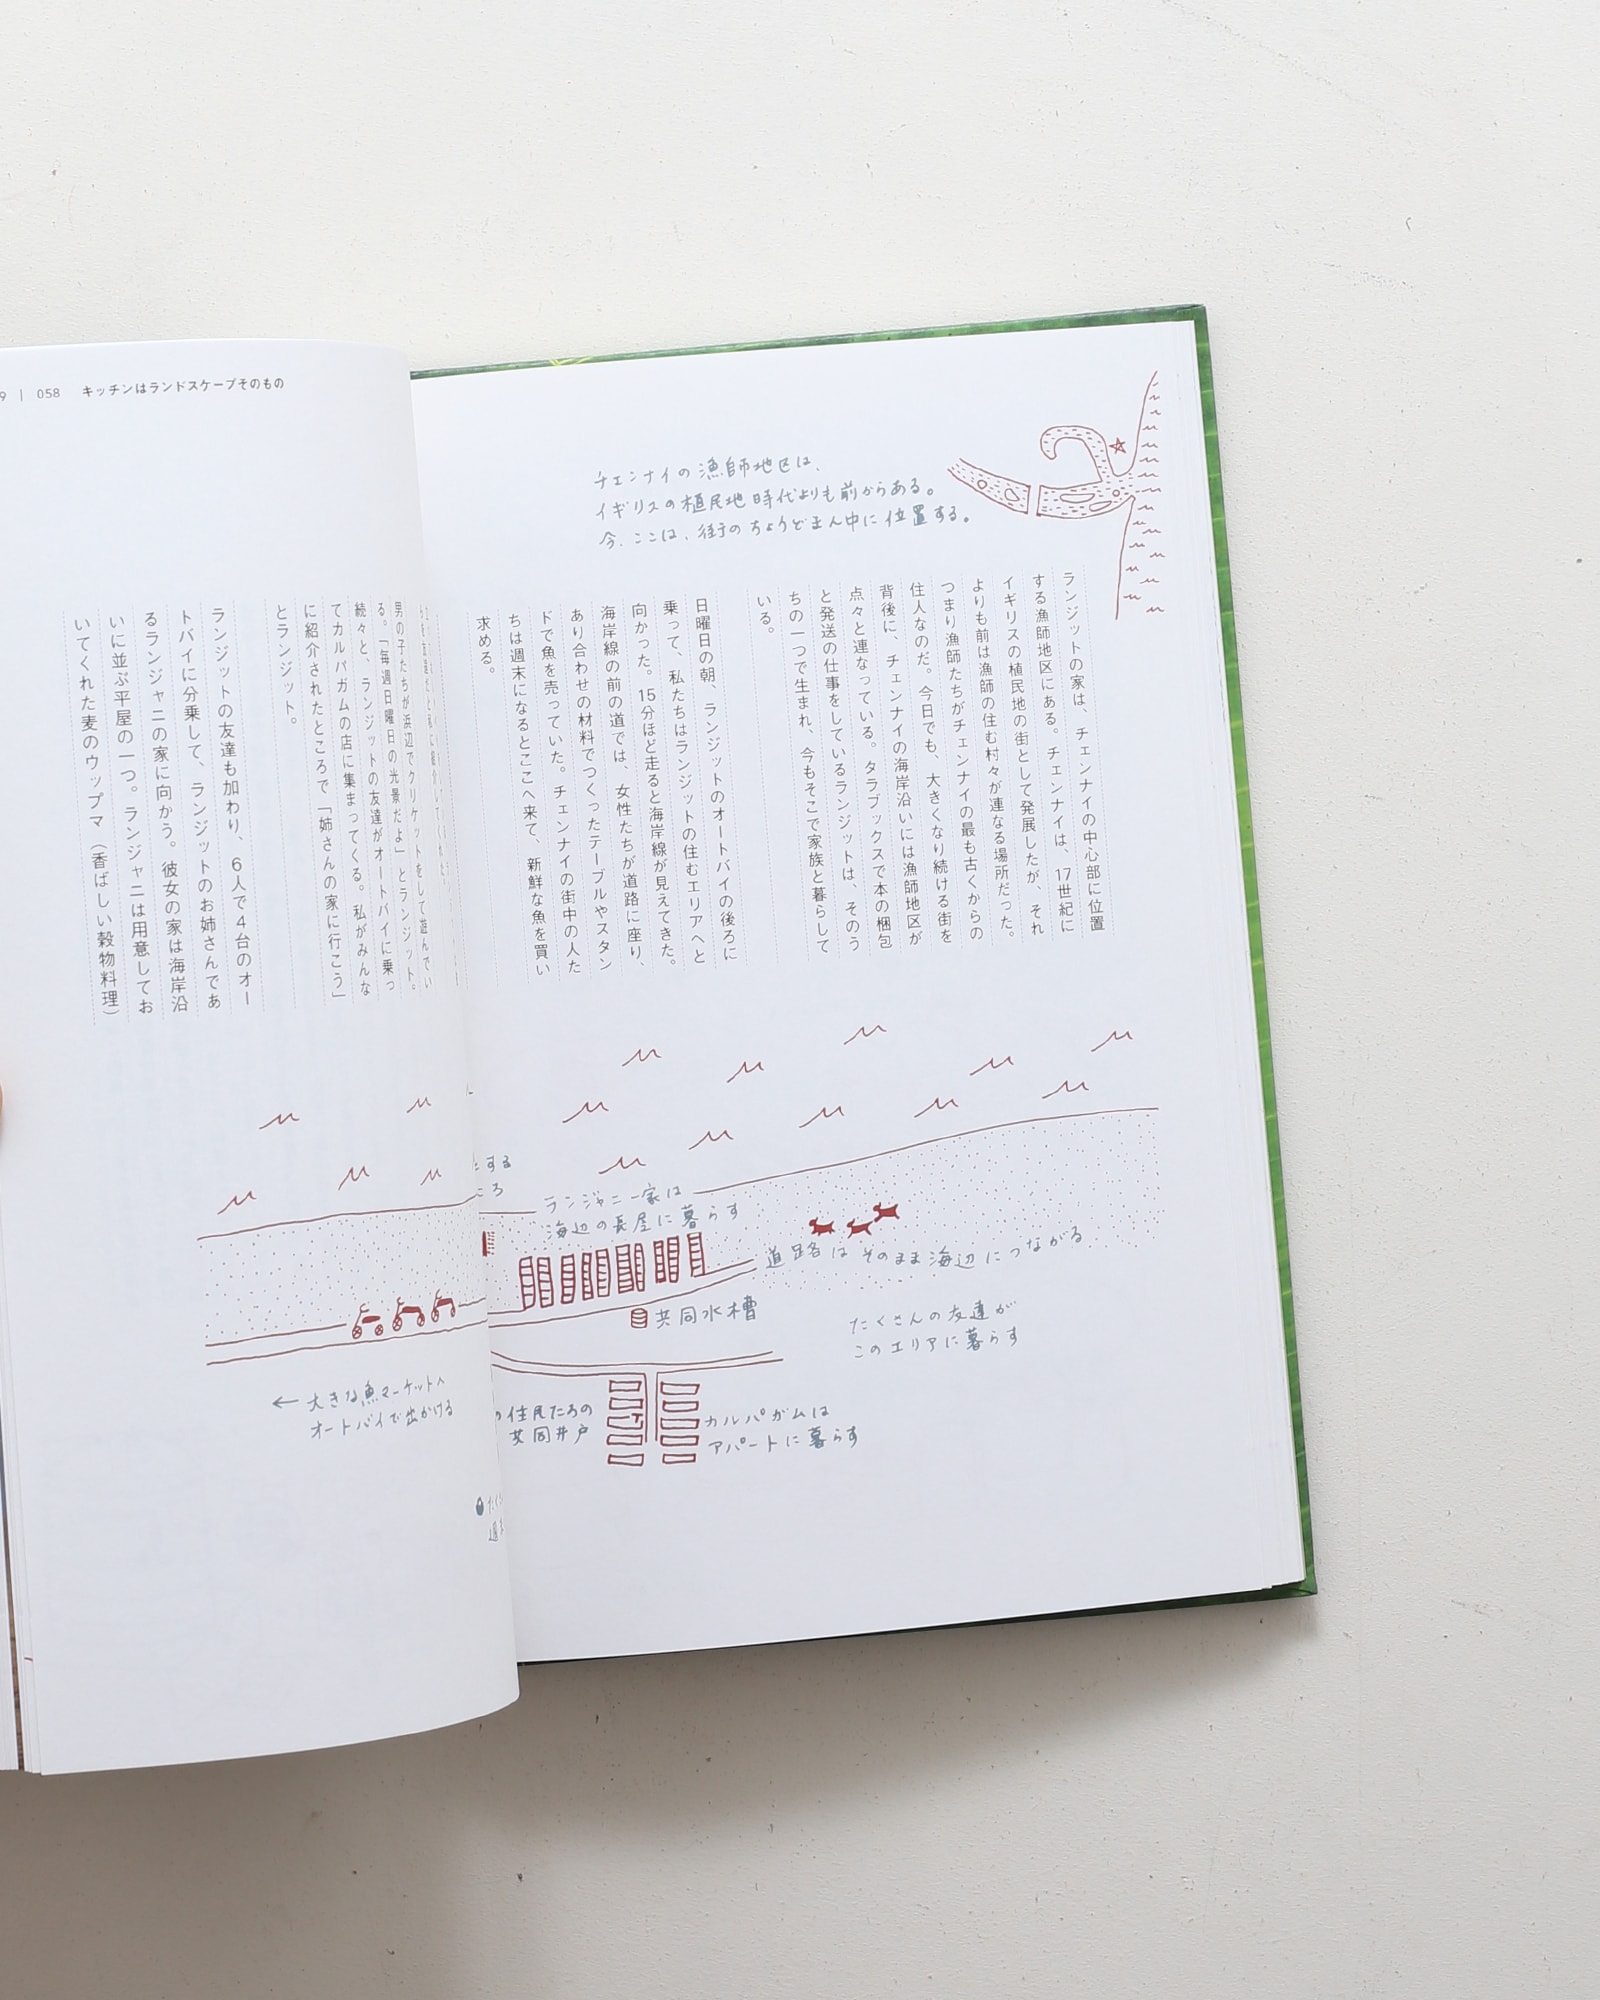 058 キッチンはランドスケープそのもの
チェンナイの漁師地区は、
イギリスの植民地時代よりも前からある。
今、ここは、街のちょうどまん中に位置する。
ランジットの家は、チェンナイの中心部に位置
する漁師地区にある。チェンナイは、17世紀に
イギリスの植民地の街として発展したが、それ
よりも前は漁師の住む村々が連なる場所だった。
つまり漁師たちがチェンナイの最も古くからの
住人なのだ。今日でも、大きくなり続ける街を
背後に、チェンナイの海岸沿いには漁師地区が
点々と連なっている。タラブックスで本の梱包
と発送の仕事をしているランジットは、そのう
ちの一つで生まれ、今もそこで家族と暮らして
いる。
日曜日の朝、ランジットのオートバイの後ろに
乗って、私たちはランジットの住むエリアへと
向かった。15分ほど走ると海岸線が見えてきた。
海岸線の前の道では、女性たちが道路に座り、
あり合わせの材料でつくったテーブルやスタン
ドで魚を売っていた。チェンナイの街中の人た
ちは週末になるとここへ来て、新鮮な魚を買い
求める。
男の子たちが浜辺でクリケットをして遊んでい
る。「毎週日曜日の光景だよ」とランジット。
続々と、ランジットの友達がオートバイに乗っ
てカルパガムの店に集まってくる。私がみんな
に紹介されたところで「姉さんの家に行こう」
とランジット。
ランジットの友達も加わり、6人で4台のオー
トバイに分乗して、ランジットのお姉さんであ
るランジャニの家に向かう。彼女の家は海岸沿
いに並ぶ平屋の一つ。ランジャニは用意してお
いてくれた麦のウップマ（香ばしい穀物料理）
たする
ころ
ランジャニ一家は
海辺の長屋に暮らす
道路はそのまま海辺につながる
共同水槽
たくさんの友達が
このエリアに暮らす
← 大きな魚マーケットへ
オートバイで出かける
の住民たちの
共同井戸
カルパガムは
アパートに暮らす